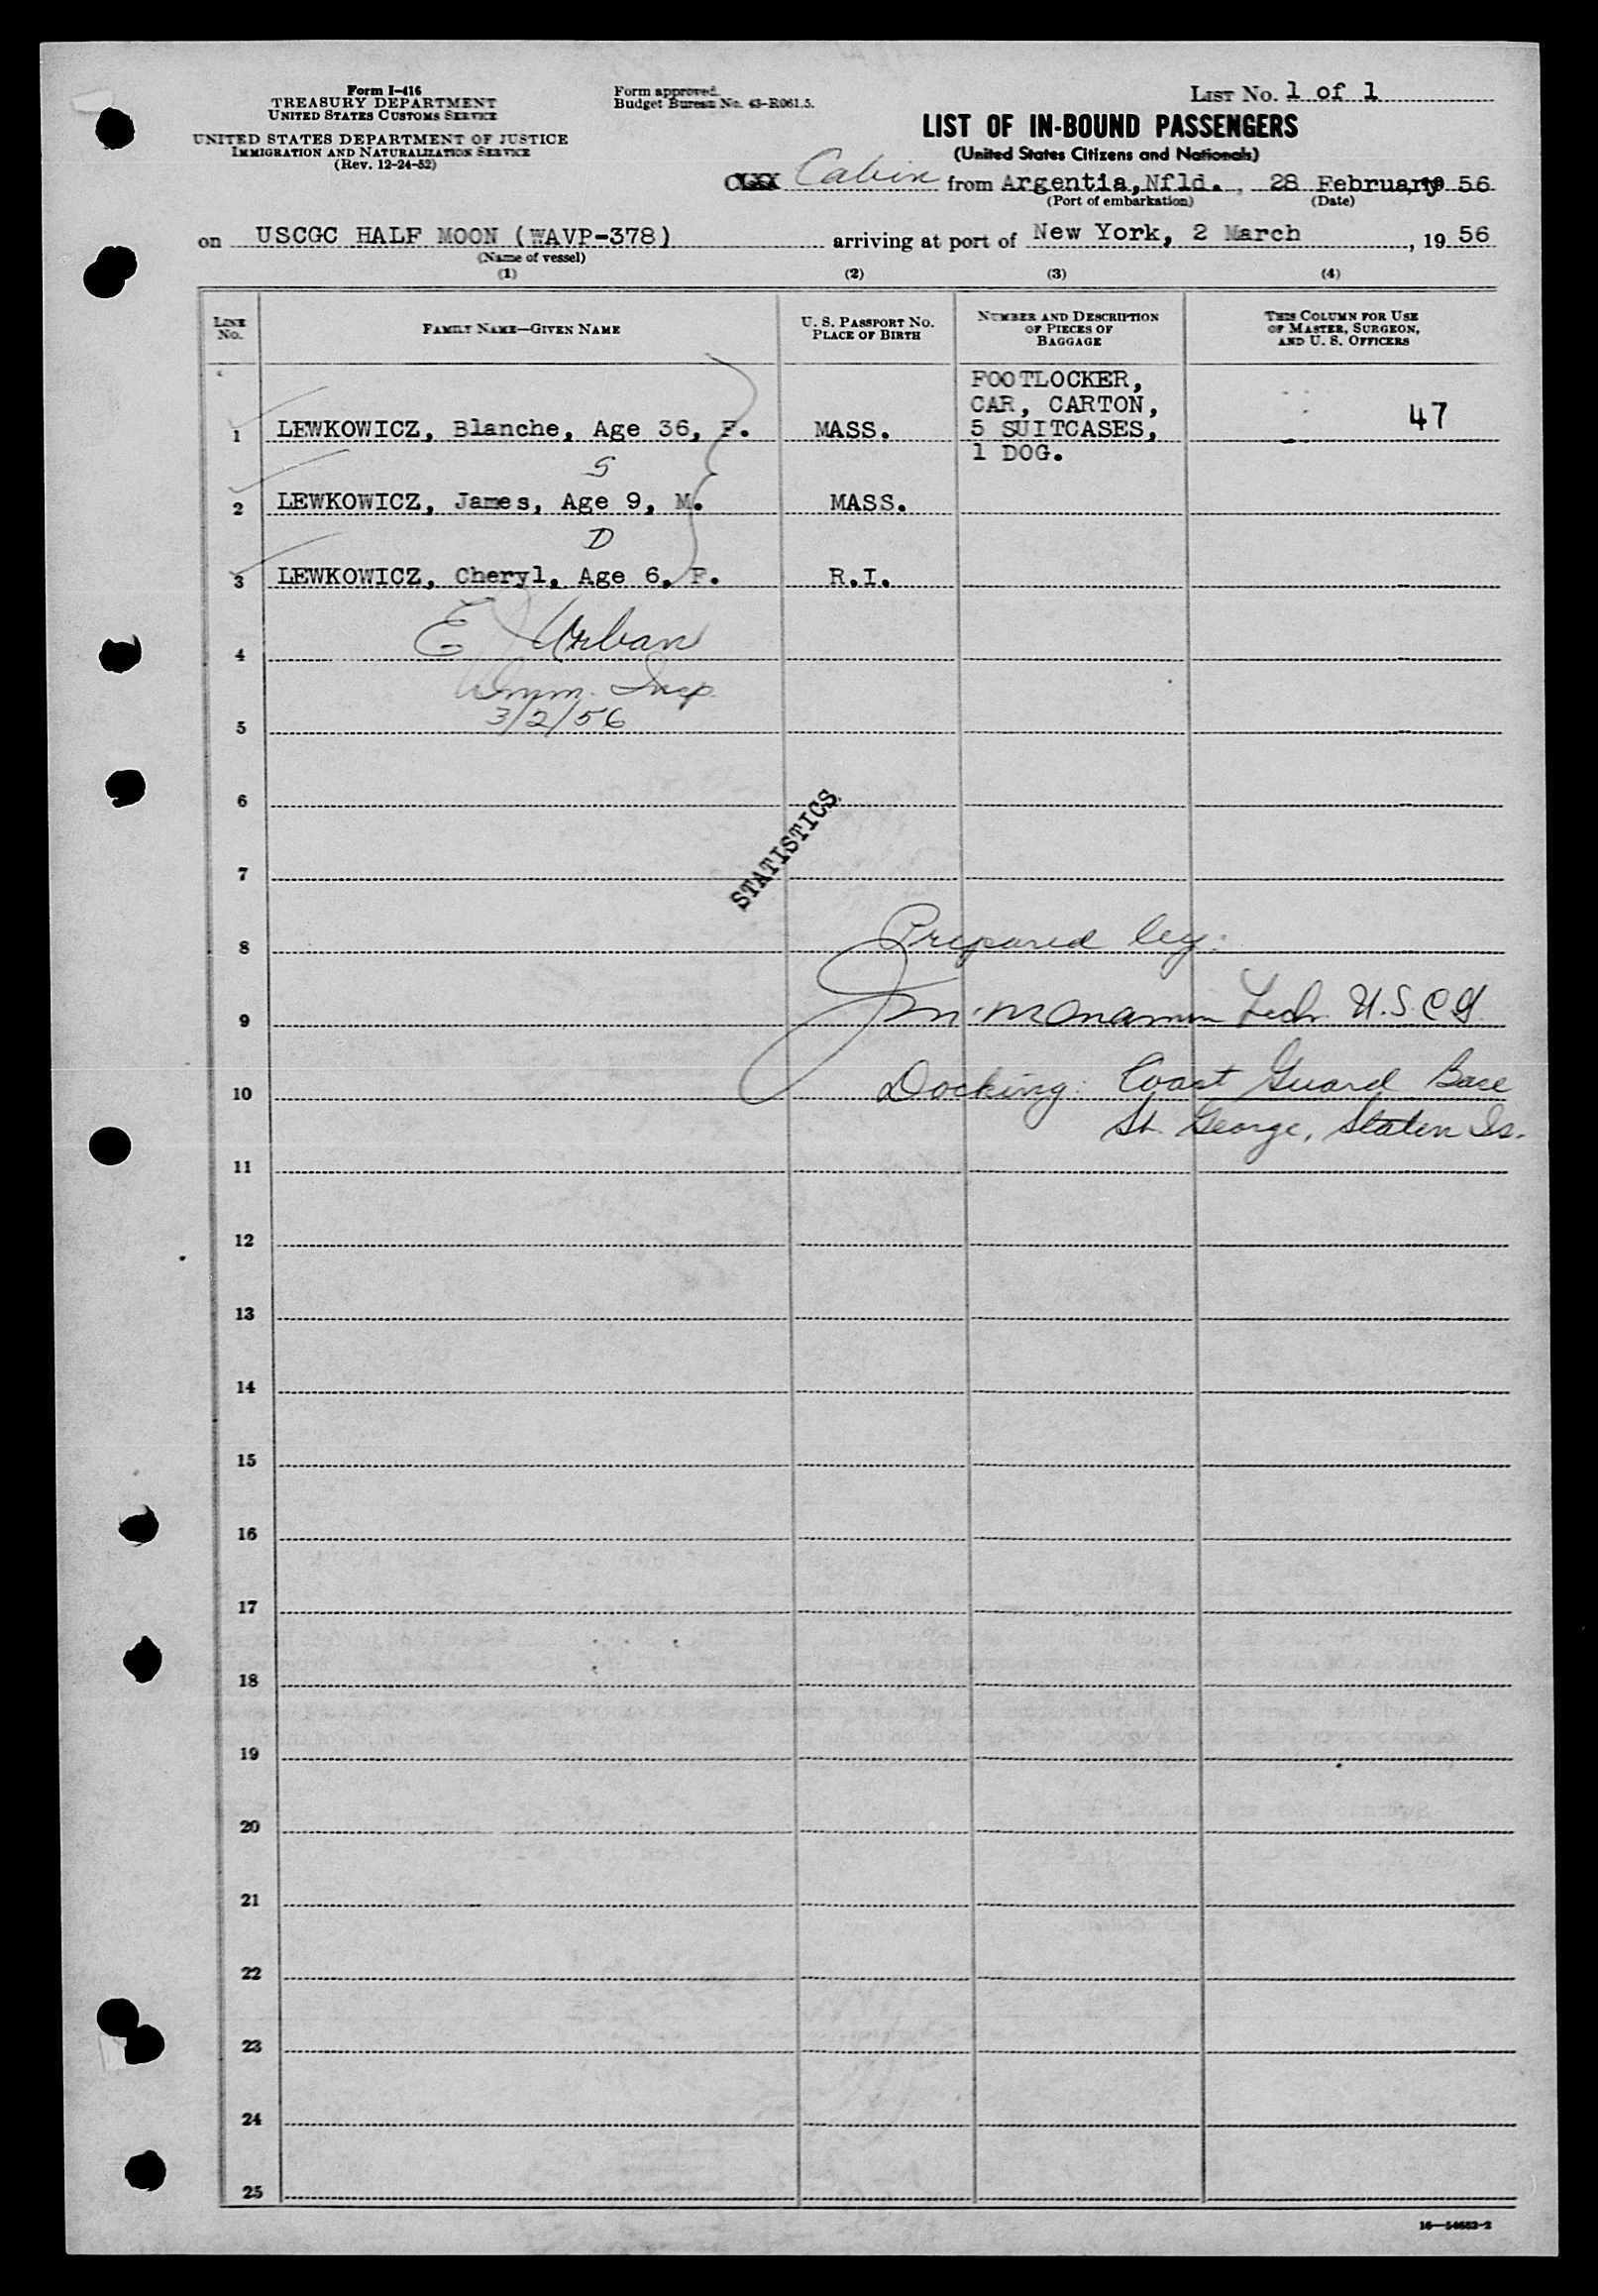 Form I-416
TREASURY DEPARTMENT
UNITED STATES CUSTOMS SERVICE
UNITED STATES DEPARTMENT OF JUSTICE
IMMIGRATION AND NATURALIZATION SERVICE
(Rev. 12-24-52)
Form approved.
Budget Bureau No. 43-R061.5.
LIST No. 1 of 1
LIST OF IN-BOUND PASSENGERS
(United States Citizens and Nationals)
Cabin from Argentia, Nfld., 28 February, 19 56
(Port of embarkation) (Date)
on USCGC HALF MOON (WAVP-378) arriving at port of New York, 2 March, 19 56
(Name of vessel)
(1) (2) (3) (4)
LINE No. FAMILY NAME—GIVEN NAME U. S. PASSPORT No. PLACE OF BIRTH NUMBER AND DESCRIPTION OF PIECES OF BAGGAGE THIS COLUMN FOR USE OF MASTER, SURGEON, AND U. S. OFFICERS
FOOTLOCKER,
CAR, CARTON,
1 LEWKOWICZ, Blanche, Age 36, F. MASS. 5 SUITCASES, 47
1 DOG.
S
2 LEWKOWICZ, James, Age 9, M. MASS.
D
3 LEWKOWICZ, Cheryl, Age 6, F. R.I.
E Urban
4
Imm. Insp.
3/2/56
5
6
STATISTICS
7
Prepared by:
8
9 U.S.C.G.
10 Docking: Coast Guard Base
St. George, Staten Is.
11
12
13
14
15
16
17
18
19
20
21
22
23
24
25
16—54682-2